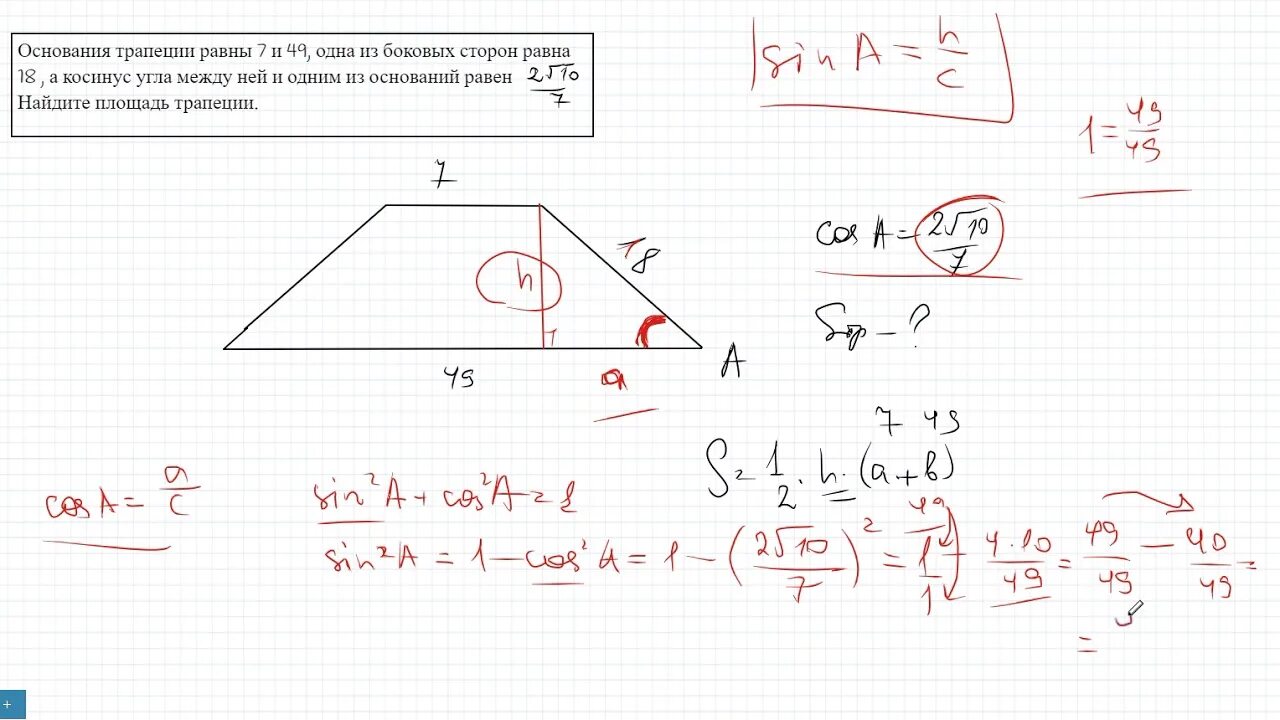 Основания трапеции равны 7 и 49, одна из боковых сторон равна
18, а косинус угла между ней и одним из оснований равен 2√10/7
Найдите площадь трапеции.
sin A = h/c
1 = 49/49
7
cos A = 2√10/7
18
h
Sтр - ?
A
49
a
7 49
S = 1/2 · h · (a + b)
cos A = a/c
sin²A + cos²A = 1
49
sin²A = 1 - cos²A = 1 - (2√10/7)² = 1/1 - 4·10/49 = 49/49 - 40/49 =
=
+